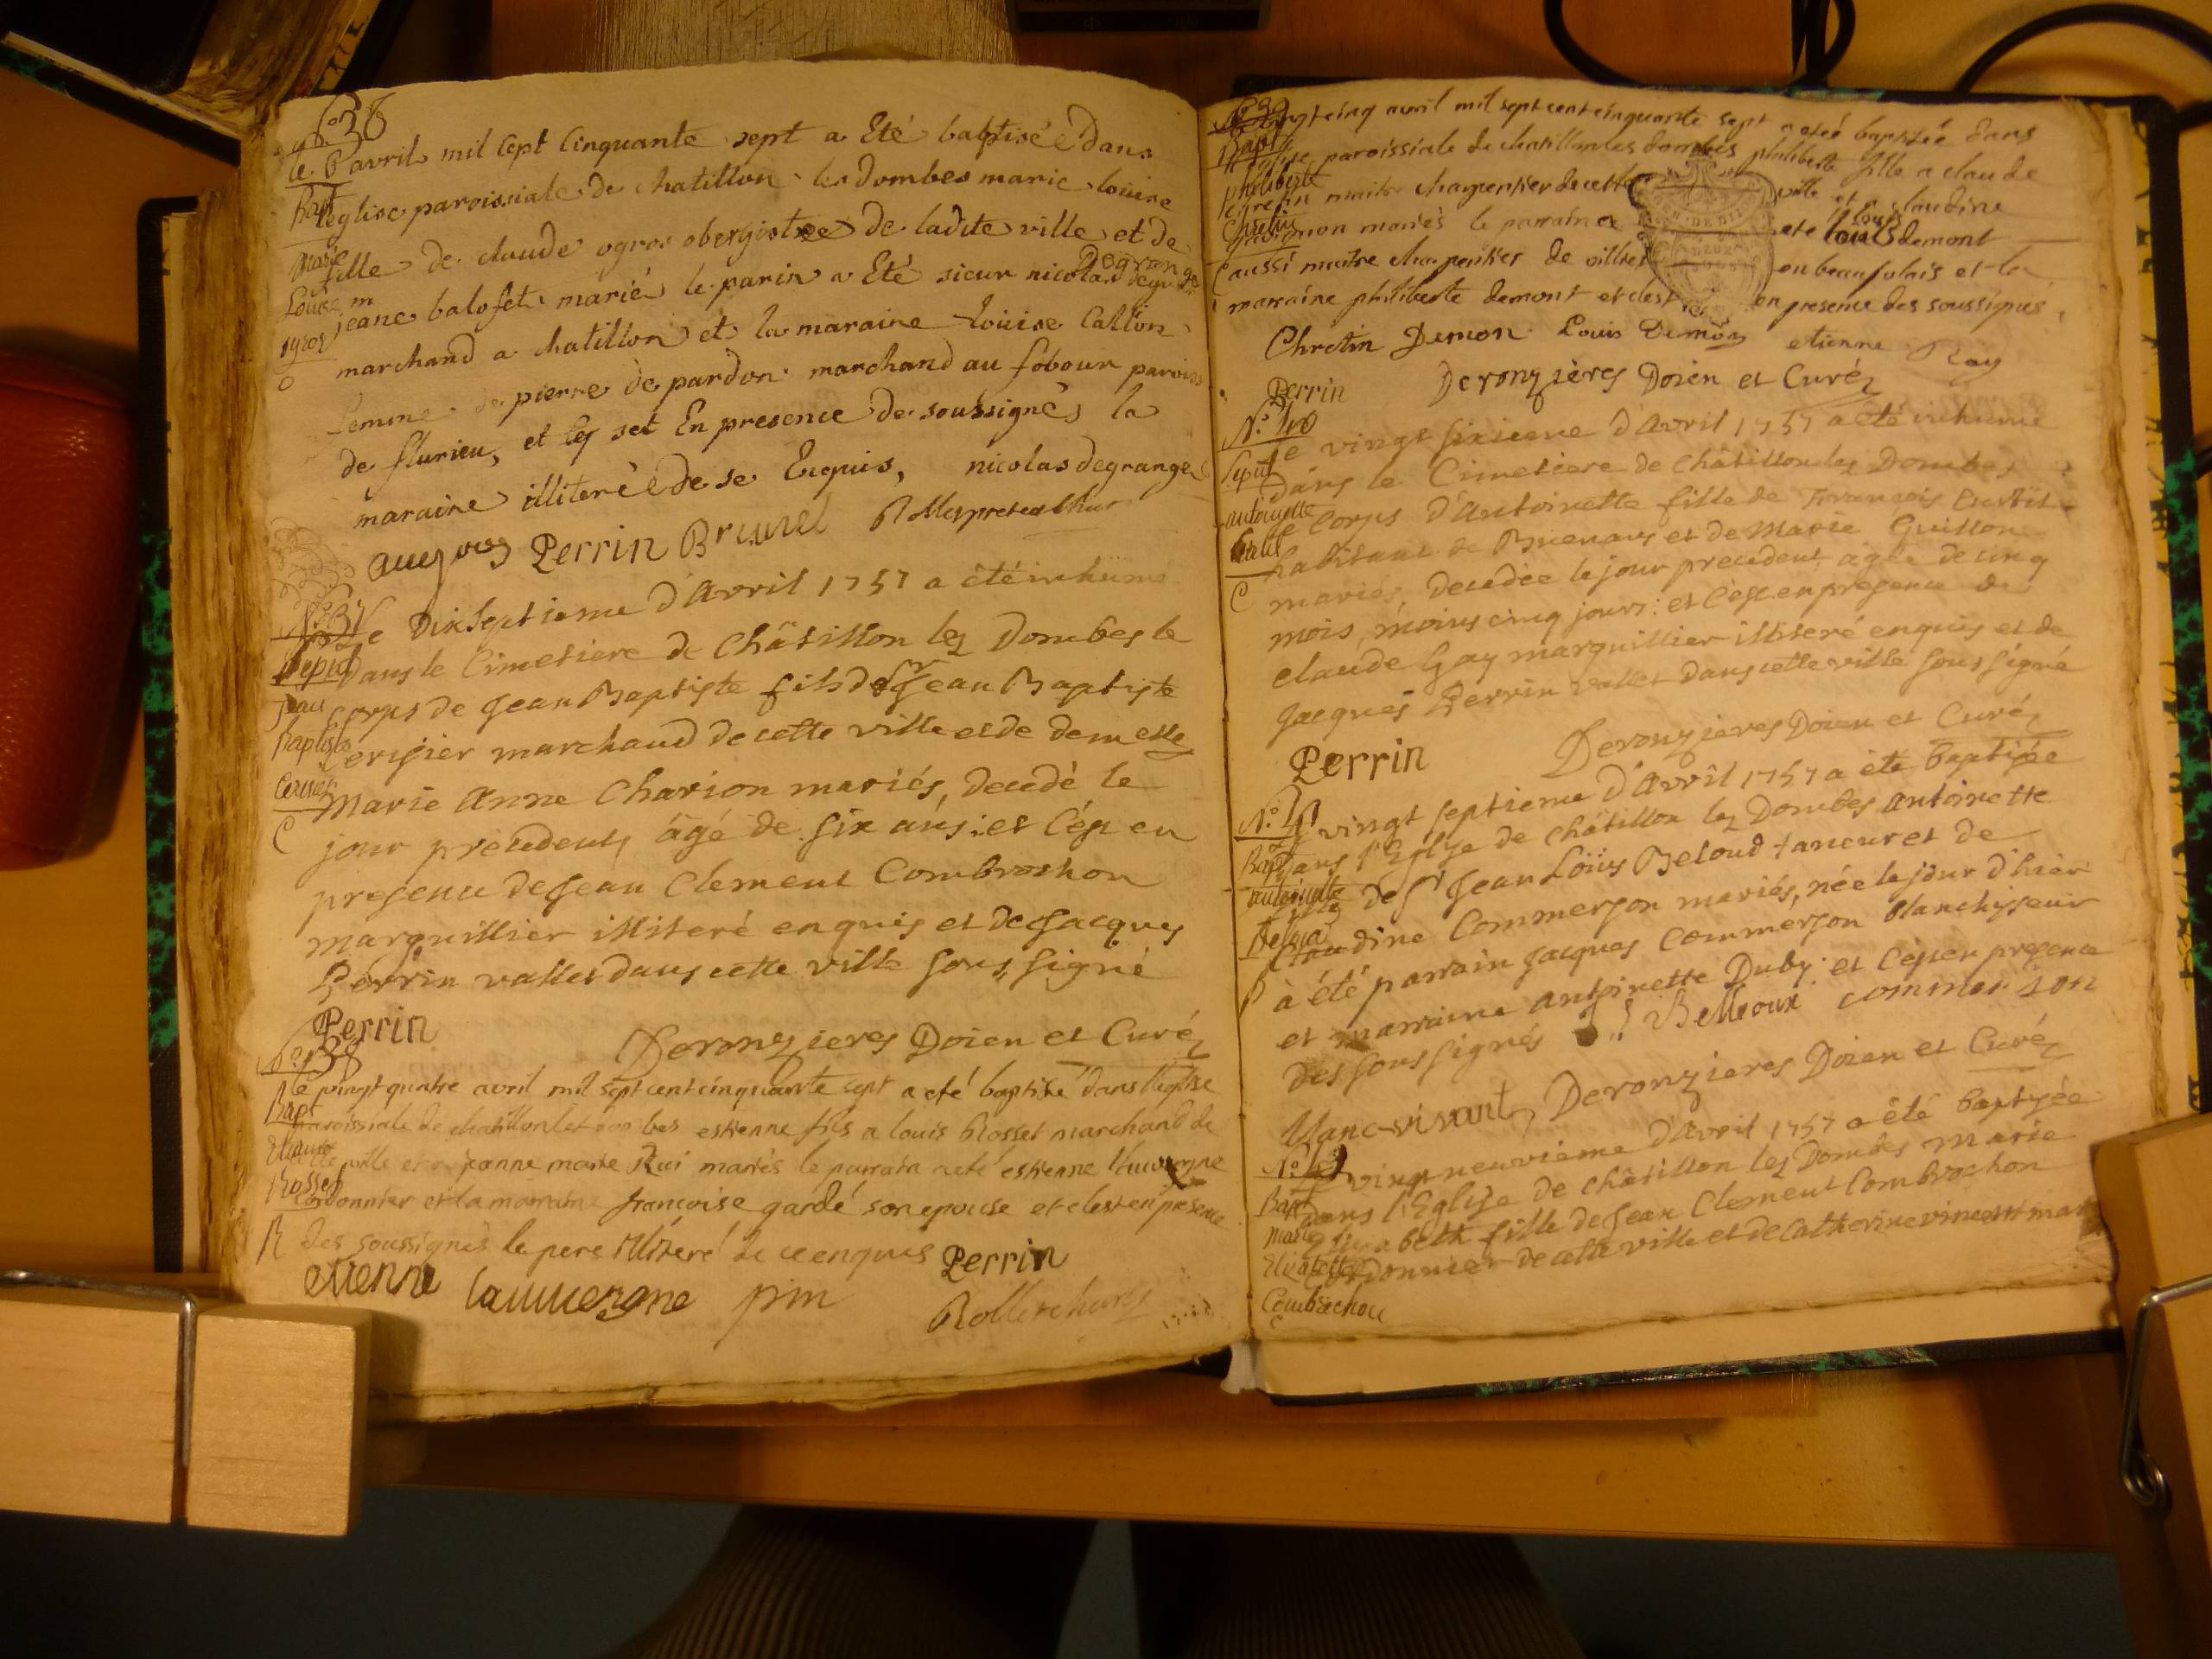 N.º 36
le 8 avril mil sept cinquante sept a Eté baptiséé dans
Bapt léglise paroissiale de chatillon les dombes marie loüise
marie fille de claude ogros obergiste de ladite ville et de
Louise jeane balofet mariés le parin a Eté sieur nicolas degrange
ogros marchand a chatillon et la maraine loüise Callon
femme de pierre de pardon marchand au fobour parois
de flurieu, et ses set En presence de soussignés la
maraine illiteréé de se Enquis, nicolas degrange
Perrin Brunel
N.º 37 Le Dixseptieme d'Avril 1757 a êté inhumé
Sepult dans le Cimetiere de Châtillon lez Dombes le
Jean corps de Jean Baptiste fils de Sr Jean Baptiste
Baptiste Cerisier marchand de cette ville et de demelle
Cerisier Marie Anne Charion mariés, decedé le
C jour precedent, âgé de six ans: et c'ést en
presence de Jean Clement Combrochon
marguillier illiteré enquis et de Jacques
Perrin vallet dans cette ville sous, signé
Perrin
Deronzieres Doien et Curé
N.º 38
le vingt quatre avril mil sept cent cinquante sept a eté baptisé dans l'eglise
Bapt paroissiale de chatillon les dombes estienne fils a louis Rosset marchand de
Etienne ville et a jeanne marie Rui mariés le parrain a eté estienne lauvergne
Rosset Cordonnier et la marraine francoise gardé son epouse et cest en presence
R des soussignés le pere illiteré de ce enquis Perrin
etienne lauvergne pin
N.º 39
le vingt cinq avril mil sept cent cinquante sept a eteé baptisée dans
Bapt l'eglise paroissiale de chatillon les dombes philiberte fille a claude
philiberte Chretin maitre charpentier de cette ville et a claudine
Chretin mariés le parrain a eté louis demont
C aussi maitre charpentier de villier en beaujolais et la
marraine philiberte demont et cest en presence des soussignés
Chretin Demon Louis Demon etienne Ray
Perrin Deronzières Doien et Curé
N.º 40
Le vingt sixieme d'Avril 1757 a été inhumé
Sepult dans le Cimetiere de Châtillon lez Dombes
antoinette le Corps d'Antoinette fille de François Curtil
Curtil habitant de Buenans et de Marie Guillon
C mariés, decedée le jour precedent, agée de cinq
mois, moins cinq jours: et c'ést en presence de
claude Gay marguillier illiteré enquis et de
Jacques Perrin vallet dans cette ville sous signé
Perrin Deronzieres Doien et Curé
N.º 41 Le vingt septieme d'Avril 1757 a été baptisée
Bapt dans l'Eglise de Châtillon lez Dombes antoinette
antoinette fille de Sr Jean Loüis Beloud taneur et de
Claudine Commerson mariés, née le jour d'hier
à été parrain Jacques Commerson blanchisseur
et marraine antoinette Duby: et c'ést en presence
des sous signés J. L. Belloux commerson
blanc-vivant, Deronzieres Doien et Curé
N.º 42 Le vingt neuvieme d'Avril 1757 a êté baptisée
Bapt dans l'Eglise de Châtillon lez Dombes Marie
marie Elizabeth fille de Jean Clement Combrochon
Elizabeth Cordonnier de cette ville et de Catherine vincent mar
Combrochon